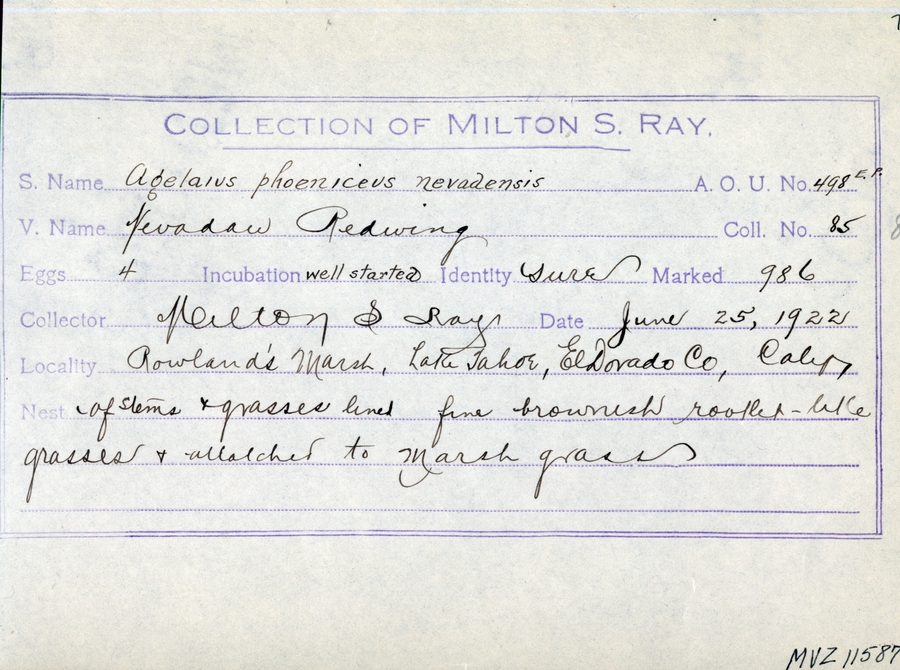 COLLECTION OF MILTON S. RAY.
S. Name Agelaius phoeniceus nevadensis A. O. U. No. 498 E.P.
V. Name Nevadan Redwing Coll. No. 85
Eggs 4 Incubation well started Identity Sure Marked 986
Collector Milton S Ray Date June 25, 1922
Locality Rowland's Marsh, Lake Tahoe, El Dorado Co, Calif,
Nest of stems & grasses lined fine brownish rootlet-like
grasses & attatched to Marsh grass
MVZ 11587